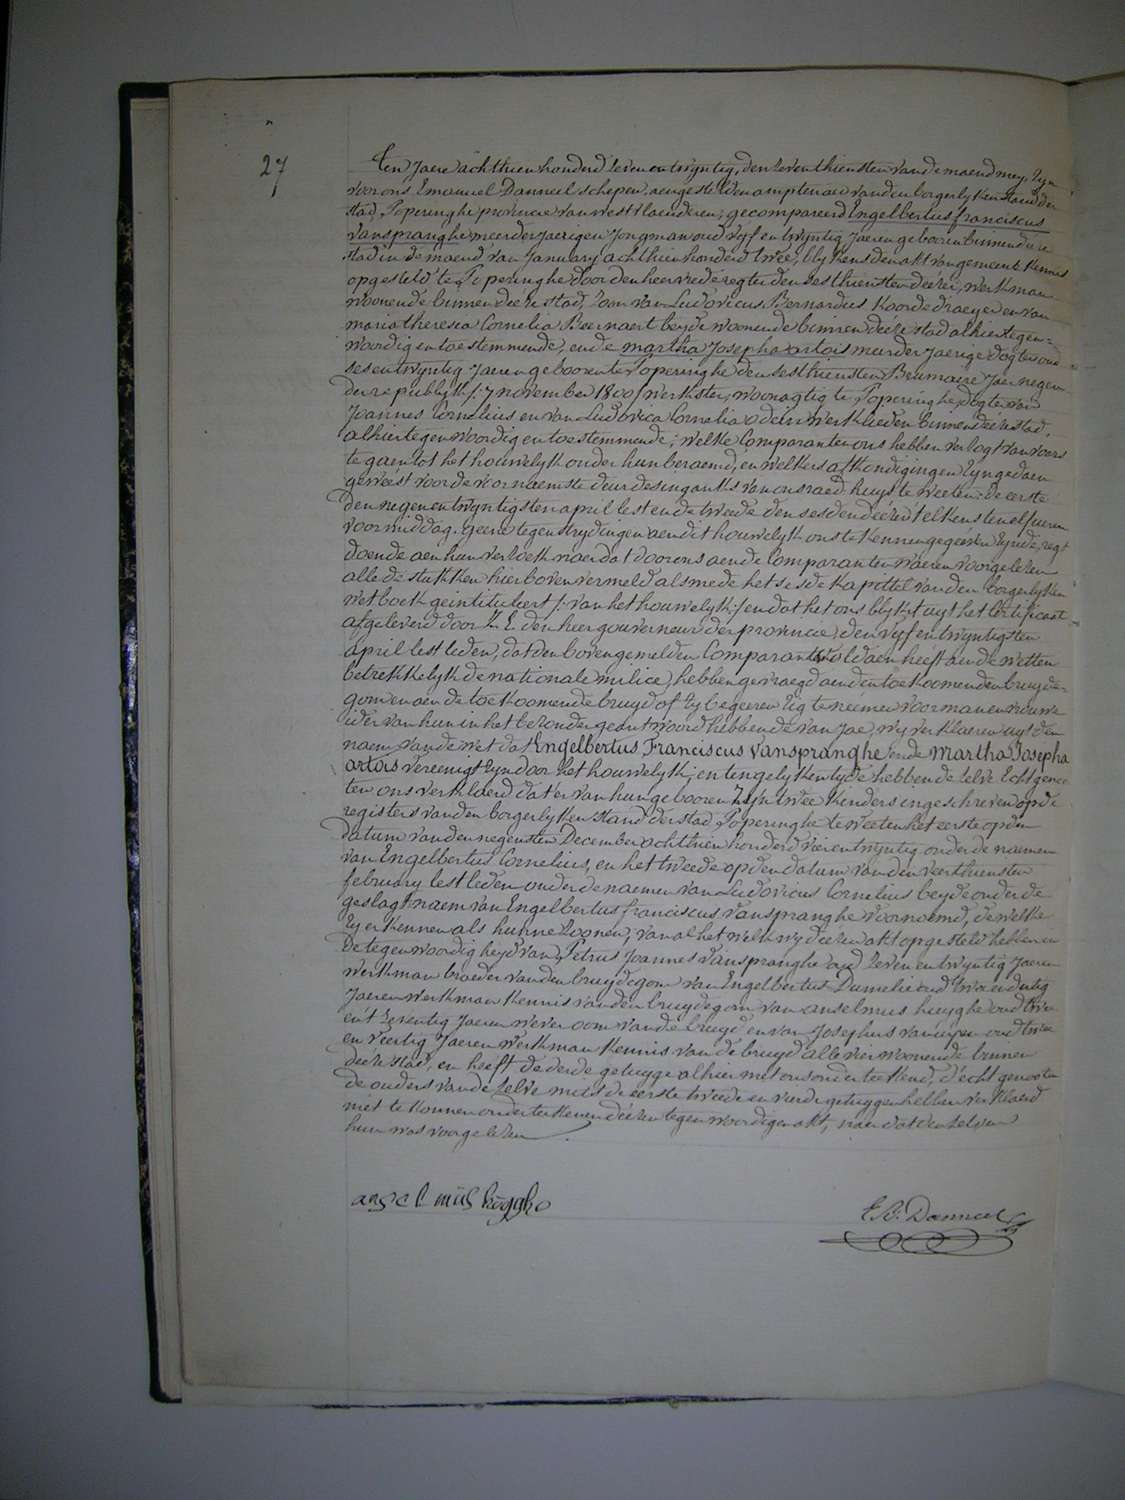 27
Ten Jaere achthien honderd zeven en twyntig, den zeventhiensten van de maend mey, zyn
voor ons Emanuel Danneel schepen, aengestelden amptenaer van den borgerlyken stand der
stad Poperinghe provincie van westvlaenderen; gecompareerd Engelbertus franciscus
vanspranghe meerderjaerigen Jongman oud vyf en twyntig Jaeren gebooren binnen deze
stad in de maend van January achthien honderd twee, blykens den akt van gemeente kennis
opgesteld te Poperinghe door den heer vrederegter den sesthiensten dezer, werkman
woonende binnen deeze stad, zoon van Ludovicus Bernardus koordedraeyer en van
maria theresia Cornelia Beernaert beyde woonende binnen deeze stad alhier tegen=
woordig en toestemmende, ende martha Josepha artois meerderjaerige dogter oud
ses en twyntig Jaeren gebooren te Poperinghe den sesthiensten Brumaire Jaer negen
der republyk /: 7 november 1800/ werkster, woonagtig te Poperinghe, dogter van
Joannes Cornelius en van Ludovica Cornelia odein werklieden binnen deeze stad,
alhier tegenwoordig en toestemmende; welke Comparanten ons hebben verzogt van voorts
te gaen tot het houwelyk onder hun beraemd, en welkers afkondigingen zyn gedaen
geweest voor de voornaemste deur des ingankx van ons raedhuys te weeten: de eerste
den negen en twyntigsten april lest ende tweede den sesden deezer telkens ten elf uren
voormiddag. geene tegenstrydingen aen dit houwelyk ons te kennen gegeeven zynde, regt
doende aen hun verzoek naer dat door ons aen de Comparanten waeren voorgelezen
alle de stukken hier boven vermeld als mede het sesde kapittel van den borgerlyken
wetboek geintituleert /: van het houwelyk:/ en dat het ons blykt uyt het certificaet
afgeleverd door Z. E. den heer gouverneur der provincie, den vyf en twyntigsten
april lestleden, dat den bovengemelden Comparant voldaen heeft aen de wetten
betrekkelyk de nationale milice, hebben gevraegd aen den toekoomenden bruyde=
gom en aen de toekoomende bruyd of zy begeeren zig te neemen voor man en vrouwe
ider van hun in het bezonder geantwoord hebbende van Jae, wy verklaeren uyt den
naem van de wet dat Engelbertus Franciscus Vanspranghe ende Martha Josepha
artois vereenigt zyn door het houwelyk; en tengelyken tyde hebben de zelve Echtgenoo
ten ons verklaerd dat er van hun gebooren zyn twee kinders ingeschreven op de
registers van den borgerlyken stand der stad Poperinghe te weeten het eerste op den
datum van den negensten December achthien honderd vier en twyntig onder de naemen
van Engelbertus Cornelius, en het tweede op den datum van den veerthiensten
february lestleden onder de naemen van Ludovicus Cornelius beyde onder de
geslagtnaem van Engelbertus franciscus vanspranghe voornoemd, de welke
zy erkennen als hunne zoonen; van al het welk wy deezen akt opgesteld hebben in
de tegenwoordigheyd van Petrus Joannes vanspranghe oud zeven en twyntig Jaeren
werkman broeder van den bruydegom van Engelbertus Dumelie oud twee en dertig
Jaeren werkman kennis van den bruydegom van anselmus huyghe oud twee
en t'zeventig Jaeren wever oom van de bruyd en van Josephus vanuxem oud twee
en veertig Jaeren werkman kennis van de bruyd alle vier woonende binnen
deeze stad, en heeft de derde getuyge alhier met ons onderteekend, d'echtgenooten
de ouders van de zelve mits de eerste tweede en vierde getuygen hebben verklaerd
niet te konnen onderteekenen deezen tegenwoordigen akt, naer dat den zelven
hun was voorgelezen
anselmus huyghe
E. B: Danneel